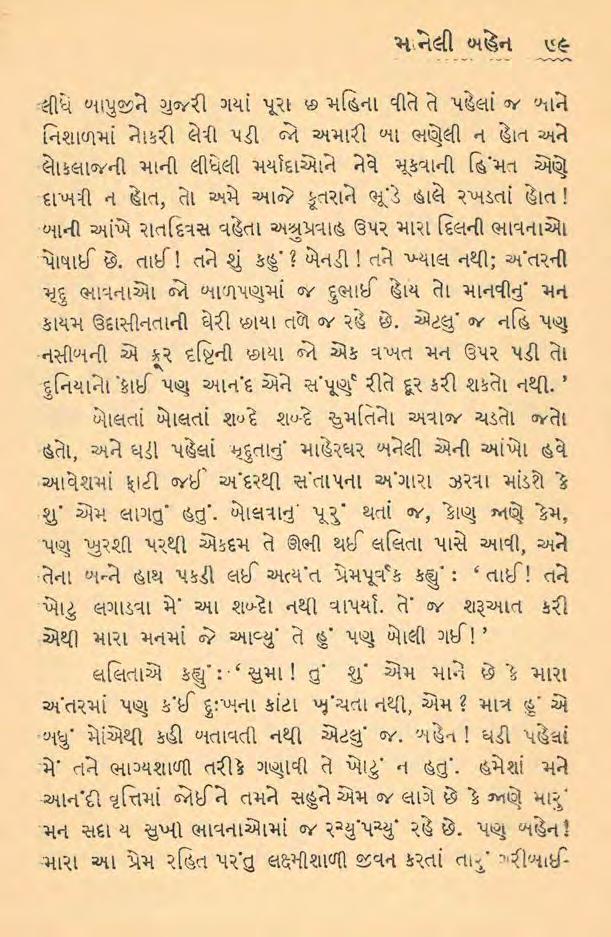 માનેલી બહેન ૭૯
લીધે બાપુજીને ગુજરી ગયાં પૂરા છ મહિના વીતે તે પહેલાં જ બાને
નિશાળમાં નોકરી લેવી પડી જો અમારી બા ભણેલી ન હોત અને
લોકલાજની માની લીધેલી મર્યાદાઓને નેવે મૂકવાની હિંમત એણે
દાખવી ન હોત, તો અમે આજે કૂતરાને ભૂંડે હાલે રખડતાં હોત!
બાની આંખે રાતદિવસ વહેતા અશ્રુપ્રવાહ ઉપર મારા દિલની ભાવનાઓ
પોષાઈ છે. તાઈ! તને શું કહું? બેનડી! તને ખ્યાલ નથી; અંતરની
મૃદુ ભાવનાઓ જો બાળપણમાં જ દુભાઈ હોય તો માનવીનું મન
કાયમ ઉદાસીનતાની ઘેરી છાયા તળે જ રહે છે. એટલું જ નહિ પણ
નસીબની એ ક્રૂર દૃષ્ટિની છાયા જો એક વખત મન ઉપર પડી તો
દુનિયાનો કોઈ પણ આનંદ એને સંપૂર્ણ રીતે દૂર કરી શકતો નથી.’
બોલતાં બોલતાં શબ્દે શબ્દે સુમતિનો અવાજ ચડતો જતો
હતો, અને ઘડી પહેલાં મૃદુતાનું માહેરઘર બનેલી એની આંખો હવે
આવેશમાં ફાટી જઈ અંદરથી સંતાપના અંગારા ઝરવા માંડશે કે
શું એમ લાગતું હતું. બોલવાનું પૂરું થતાં જ, કોણ જાણે કેમ,
પણ ખુરશી પરથી એકદમ તે ઊભી થઈ લલિતા પાસે આવી, અને
તેના બન્ને હાથ પકડી લઈ અત્યંત પ્રેમપૂર્વક કહ્યું: ‘તાઈ! તને
ખોટું લગાડવા મેં આ શબ્દો નથી વાપર્યા. તેં જ શરૂઆત કરી
એથી મારા મનમાં જે આવ્યું તે હું પણ બોલી ગઈ!’
લલિતાએ કહ્યું: ‘સુમા! તું શું એમ માને છે કે મારા
અંતરમાં પણ કંઈ દુઃખના કાંટા ખૂંચતા નથી, એમ? માત્ર હું એ
બધું મોંએથી કહી બતાવતી નથી એટલું જ. બહેન! ઘડી પહેલાં
મેં તને ભાગ્યશાળી તરીકે ગણાવી તે ખોટું ન હતું. હમેશાં મને
આનંદી વૃત્તિમાં જોઈને તમને સહુને એમ જ લાગે છે કે જાણે મારું
મન સદા ય સુખી ભાવનાઓમાં જ રચ્યુંપચ્યું રહે છે. પણ બહેન!
મારા આ પ્રેમ રહિત પરંતુ લક્ષ્મીશાળી જીવન કરતાં તારું ગરીબાઈ-